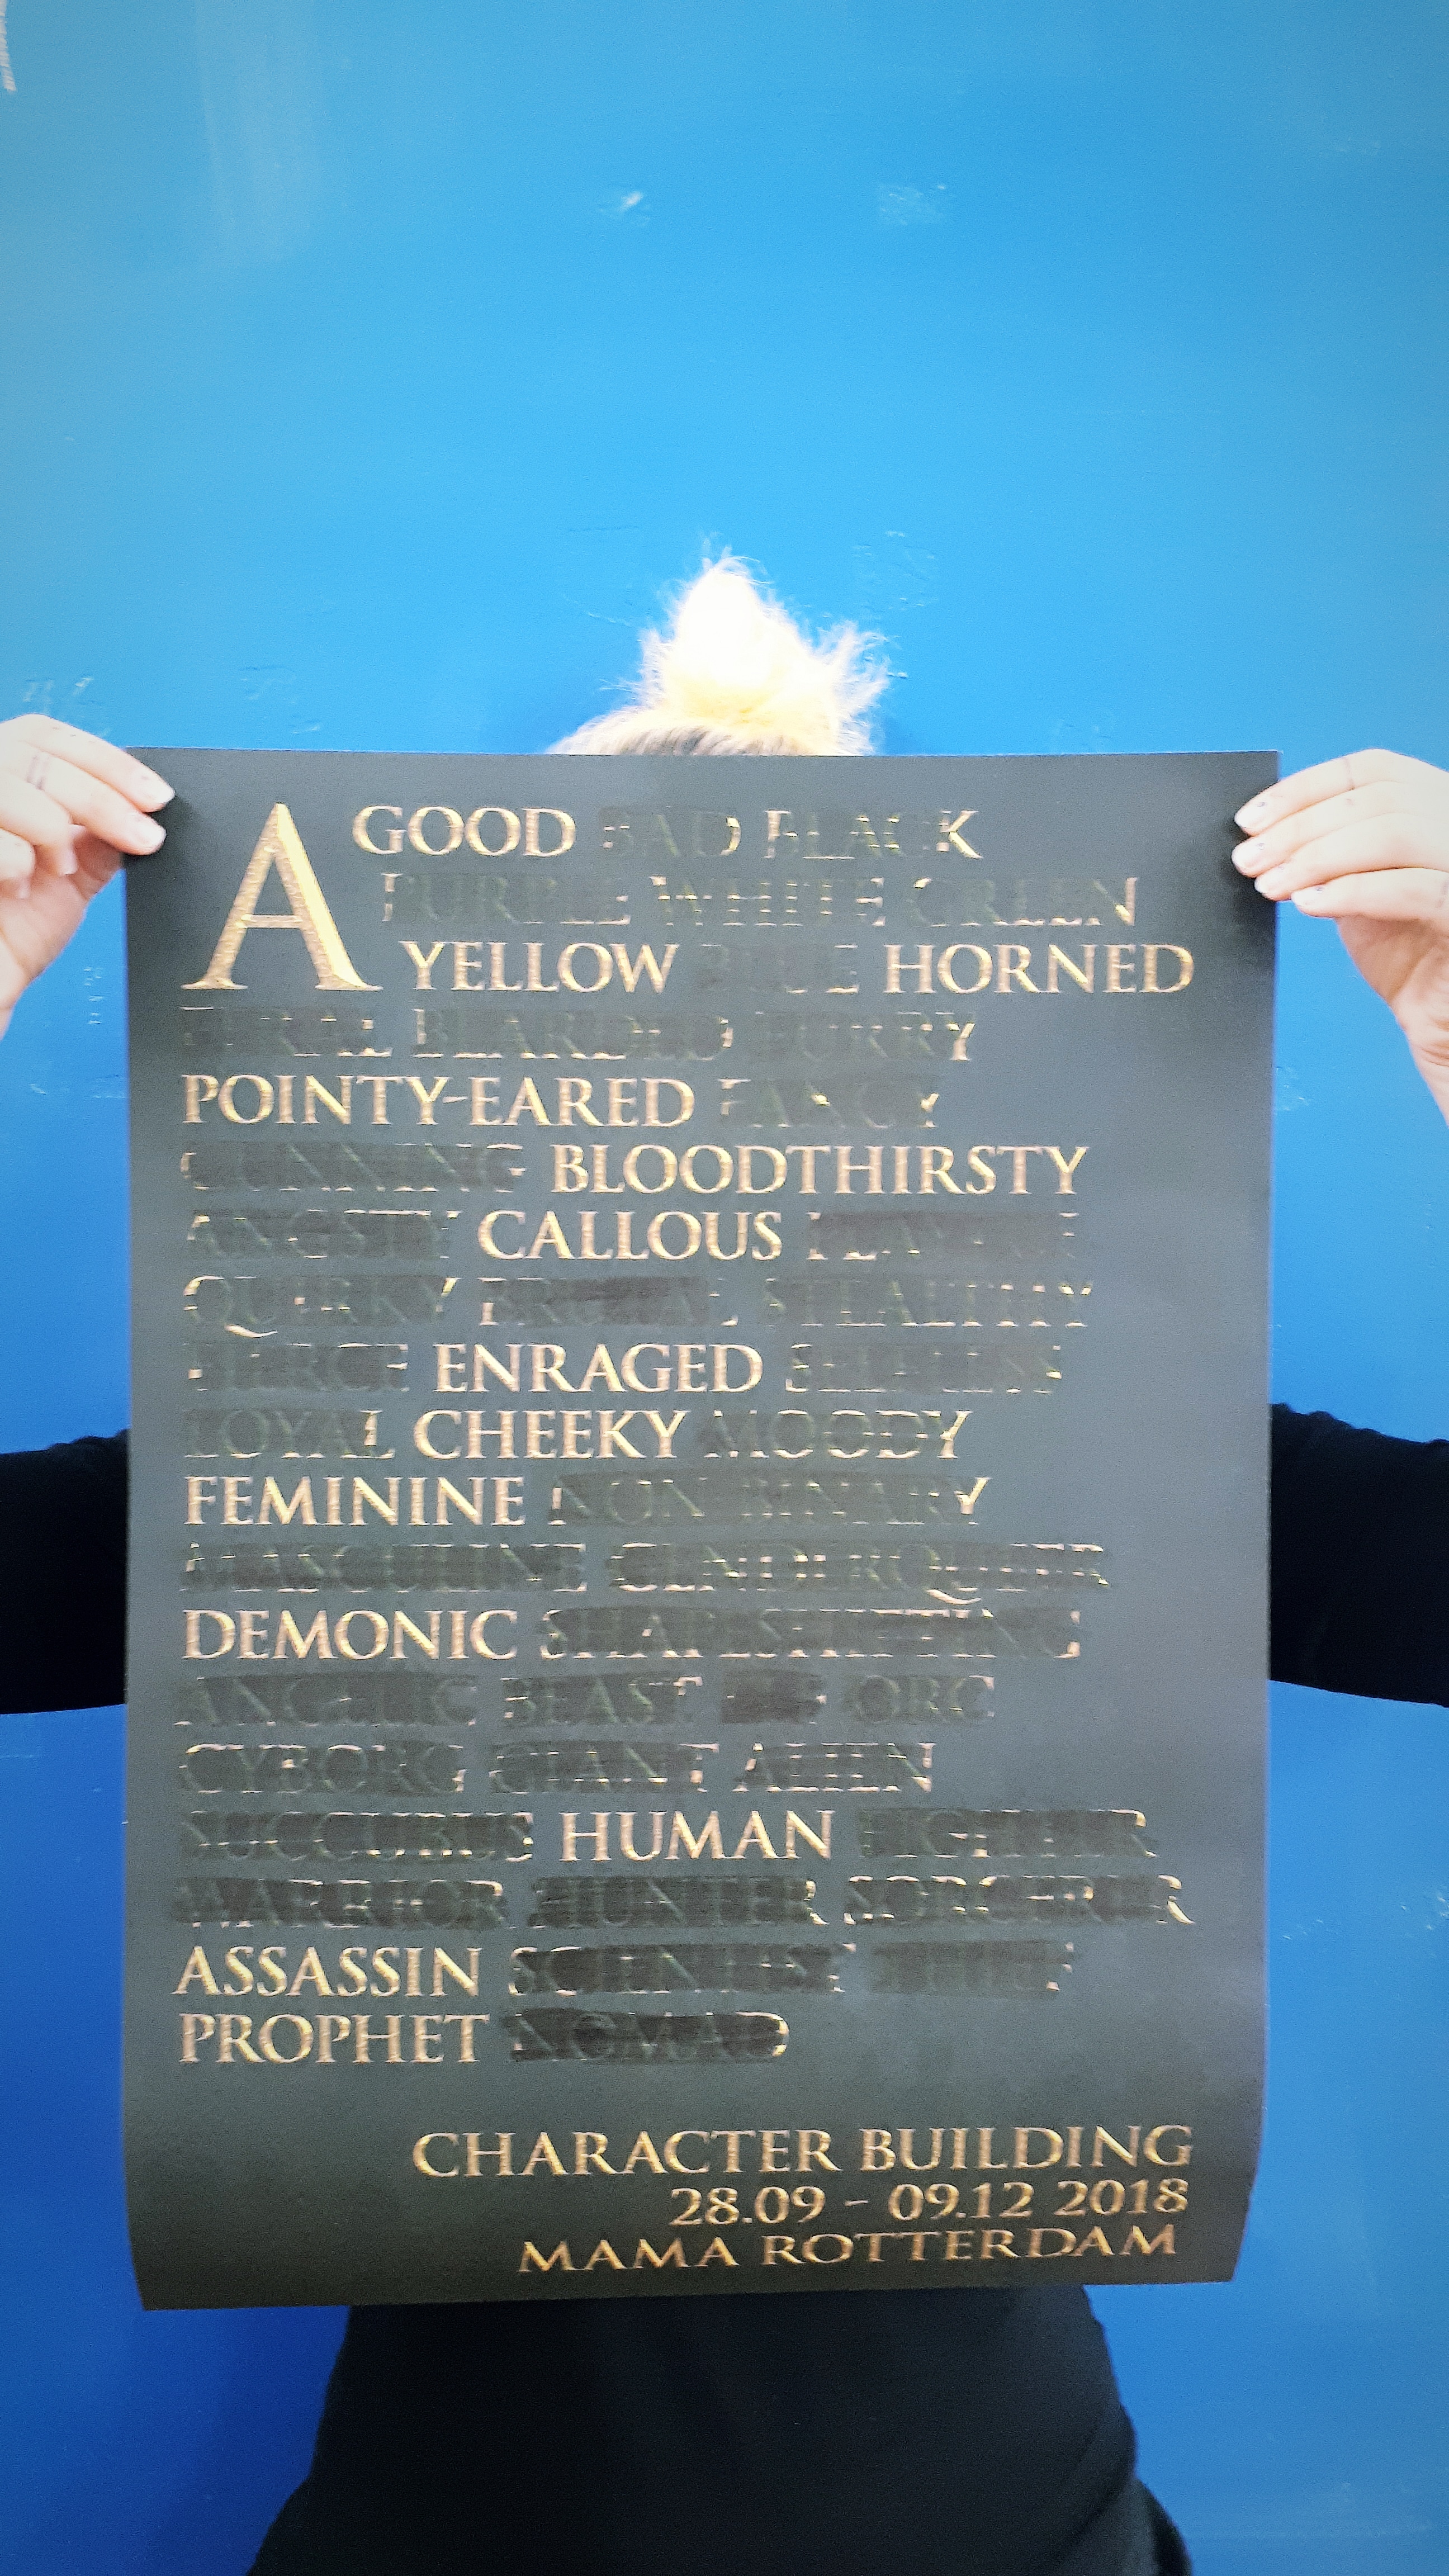 A GOOD BAD BLACK
PURPLE WHITE GREEN
YELLOW BLUE HORNED
FERAL BEARDED FURRY
POINTY-EARED FANCY
CUNNING BLOODTHIRSTY
ANGSTY CALLOUS PLAYFUL
QUIRKY BRUTAL STEALTHY
FIERCE ENRAGED SELFLESS
LOYAL CHEEKY MOODY
FEMININE NON BINARY
MASCULINE GENDERQUEER
DEMONIC SHAPESHIFTING
ANGELIC BEAST ORC
CYBORG GIANT ALIEN
SUCCUBUS HUMAN FIGHTER
WARRIOR HUNTER SORCERER
ASSASSIN SCIENTIST THIEF
PROPHET NOMAD
CHARACTER BUILDING
28.09 - 09.12 2018
MAMA ROTTERDAM